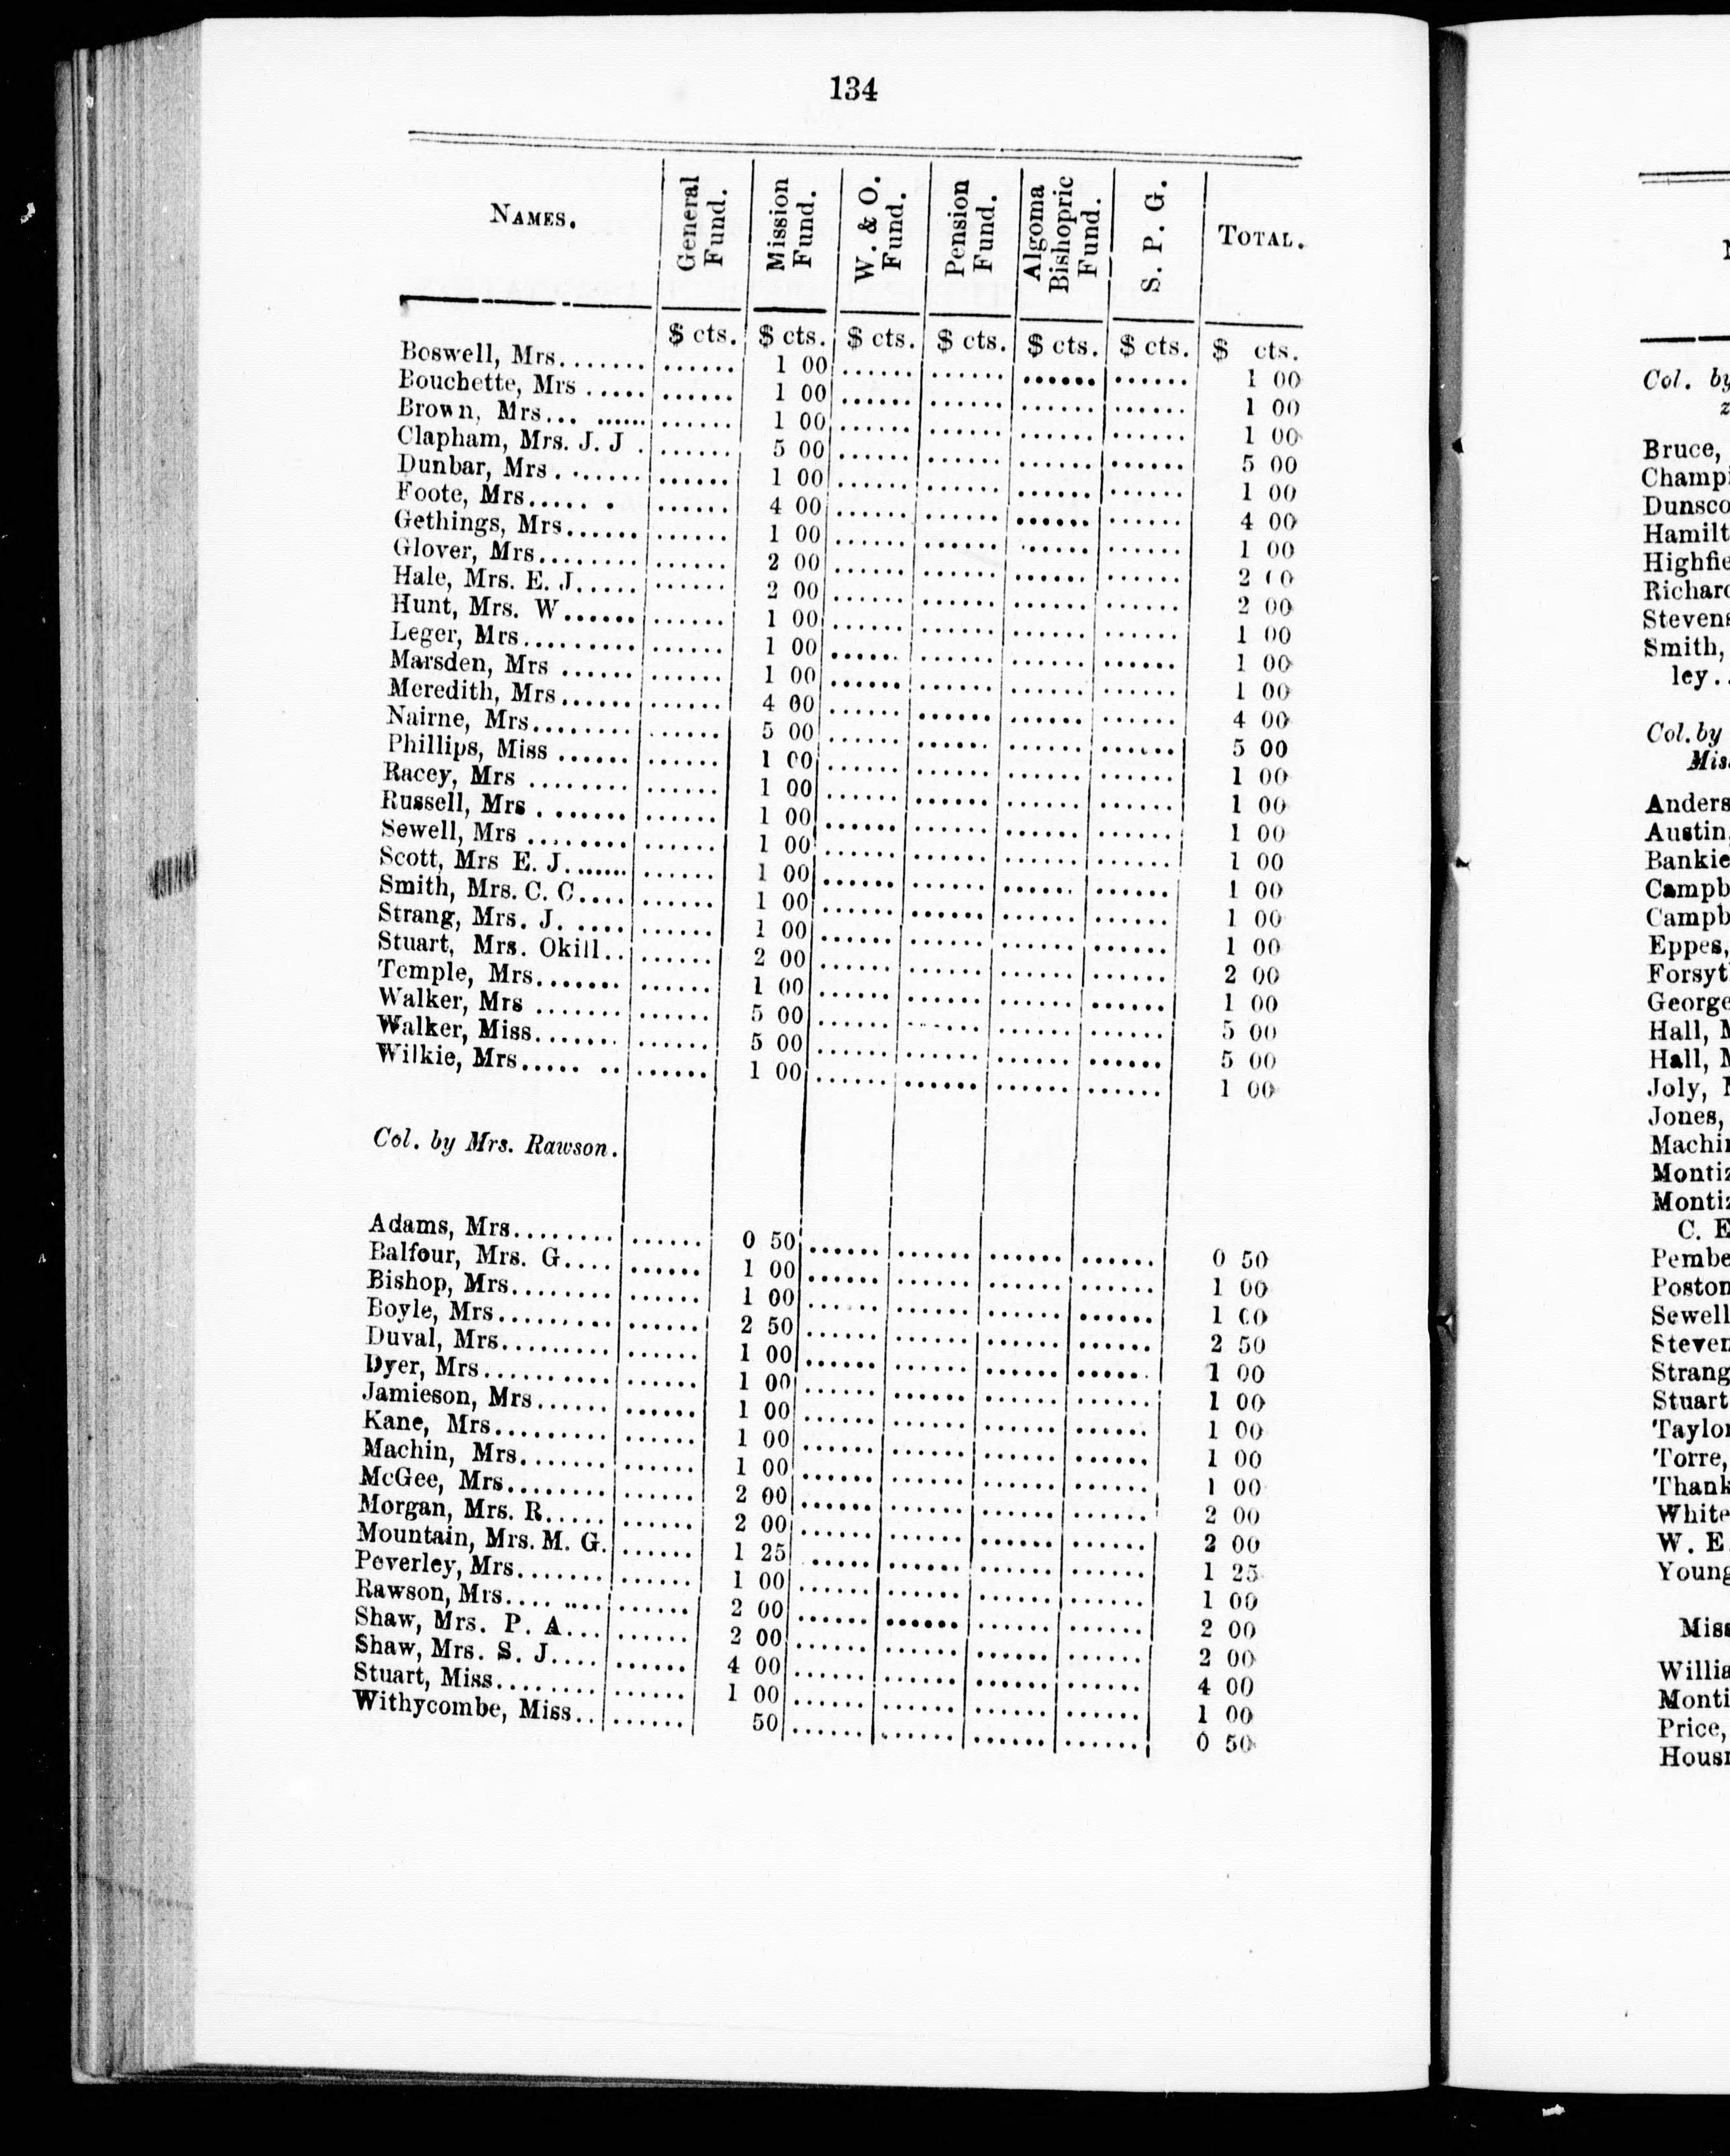 134
NAMES. General Fund. Mission Fund. W. & O. Fund. Pension Fund. Algoma Bishopric Fund. S. P. G. TOTAL.
$ cts. $ cts. $ cts. $ cts. $ cts. $ cts. $ cts.
Boswell, Mrs........ ...... 1 00 ...... ...... ...... ...... 1 00
Bouchette, Mrs ..... ...... 1 00 ...... ...... ...... ...... 1 00
Brown, Mrs... ...... ...... 1 00 ...... ...... ...... ...... 1 00
Clapham, Mrs. J. J . ...... 5 00 ...... ...... ...... ...... 5 00
Dunbar, Mrs . ...... ...... 1 00 ...... ...... ...... ...... 1 00
Foote, Mrs...... . ...... 4 00 ...... ...... ...... ...... 4 00
Gethings, Mrs...... ...... 1 00 ...... ...... ...... ...... 1 00
Glover, Mrs......... ...... 2 00 ...... ...... ...... ...... 2 00
Hale, Mrs. E. J..... ...... 2 00 ...... ...... ...... ...... 2 00
Hunt, Mrs. W...... ...... 1 00 ...... ...... ...... ...... 1 00
Leger, Mrs.......... ...... 1 00 ...... ...... ...... ...... 1 00
Marsden, Mrs ...... ...... 1 00 ...... ...... ...... ...... 1 00
Meredith, Mrs...... ...... 4 00 ...... ...... ...... ...... 4 00
Nairne, Mrs......... ...... 5 00 ...... ...... ...... ...... 5 00
Phillips, Miss ...... ...... 1 00 ...... ...... ...... ...... 1 00
Racey, Mrs ........ ...... 1 00 ...... ...... ...... ...... 1 00
Russell, Mrs . ...... ...... 1 00 ...... ...... ...... ...... 1 00
Sewell, Mrs ........ ...... 1 00 ...... ...... ...... ...... 1 00
Scott, Mrs E. J....... ...... 1 00 ...... ...... ...... ...... 1 00
Smith, Mrs. C. C.... ...... 1 00 ...... ...... ...... ...... 1 00
Strang, Mrs. J. .... ...... 1 00 ...... ...... ...... ...... 1 00
Stuart, Mrs. Okill.. ...... 2 00 ...... ...... ...... ...... 2 00
Temple, Mrs....... ...... 1 00 ...... ...... ...... ...... 1 00
Walker, Mrs ....... ...... 5 00 ...... ...... ...... ...... 5 00
Walker, Miss....... ...... 5 00 ...... ...... ...... ...... 5 00
Wilkie, Mrs..... .. ...... 1 00 ...... ...... ...... ...... 1 00
Col. by Mrs. Rawson.
Adams, Mrs......... ...... 0 50 ...... ...... ...... ...... 0 50
Balfour, Mrs. G.... ...... 1 00 ...... ...... ...... ...... 1 00
Bishop, Mrs........ ...... 1 00 ...... ...... ...... ...... 1 00
Boyle, Mrs.......... ...... 2 50 ...... ...... ...... ...... 2 50
Duval, Mrs......... ...... 1 00 ...... ...... ...... ...... 1 00
Dyer, Mrs.......... ...... 1 00 ...... ...... ...... ...... 1 00
Jamieson, Mrs...... ...... 1 00 ...... ...... ...... ...... 1 00
Kane, Mrs.......... ...... 1 00 ...... ...... ...... ...... 1 00
Machin, Mrs....... ...... 1 00 ...... ...... ...... ...... 1 00
McGee, Mrs........ ...... 2 00 ...... ...... ...... ...... 2 00
Morgan, Mrs. R..... ...... 2 00 ...... ...... ...... ...... 2 00
Mountain, Mrs. M. G. ...... 1 25 ...... ...... ...... ...... 1 25
Peverley, Mrs....... ...... 1 00 ...... ...... ...... ...... 1 00
Rawson, Mrs.... .... ...... 2 00 ...... ...... ...... ...... 2 00
Shaw, Mrs. P. A... ...... 2 00 ...... ...... ...... ...... 2 00
Shaw, Mrs. S. J.... ...... 4 00 ...... ...... ...... ...... 4 00
Stuart, Miss........ ...... 1 00 ...... ...... ...... ...... 1 00
Withycombe, Miss.. ...... 50 ...... ...... ...... ...... 0 50
Col. by
Bruce,
Stevens
Smith,
ley..
Col. by
Austin,
Eppes,
George
Hall, M
Hall, M
Joly, M
Jones,
C. E
Poston
Sewell
Strang
Stuart
Taylor
Torre,
Thank
White
W. E.
Young
Miss
Price,